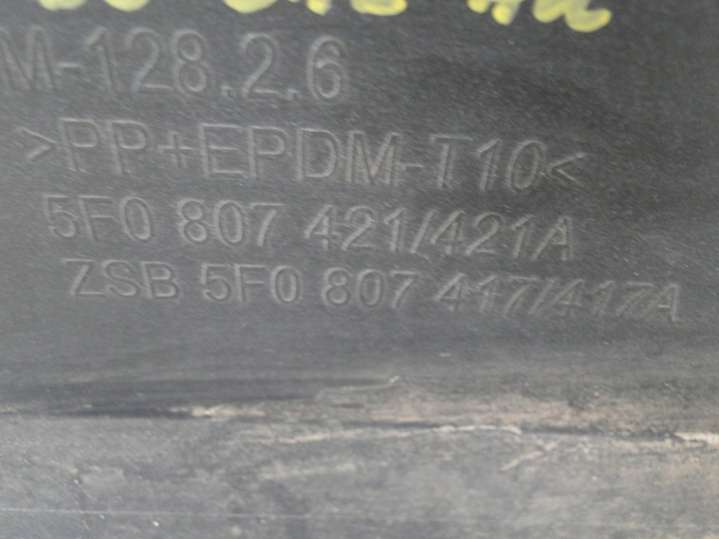 M-128.2.6
>PP+EPDM-T10<
5F0 807 421/421A
ZSB 5F0 807 417/417A